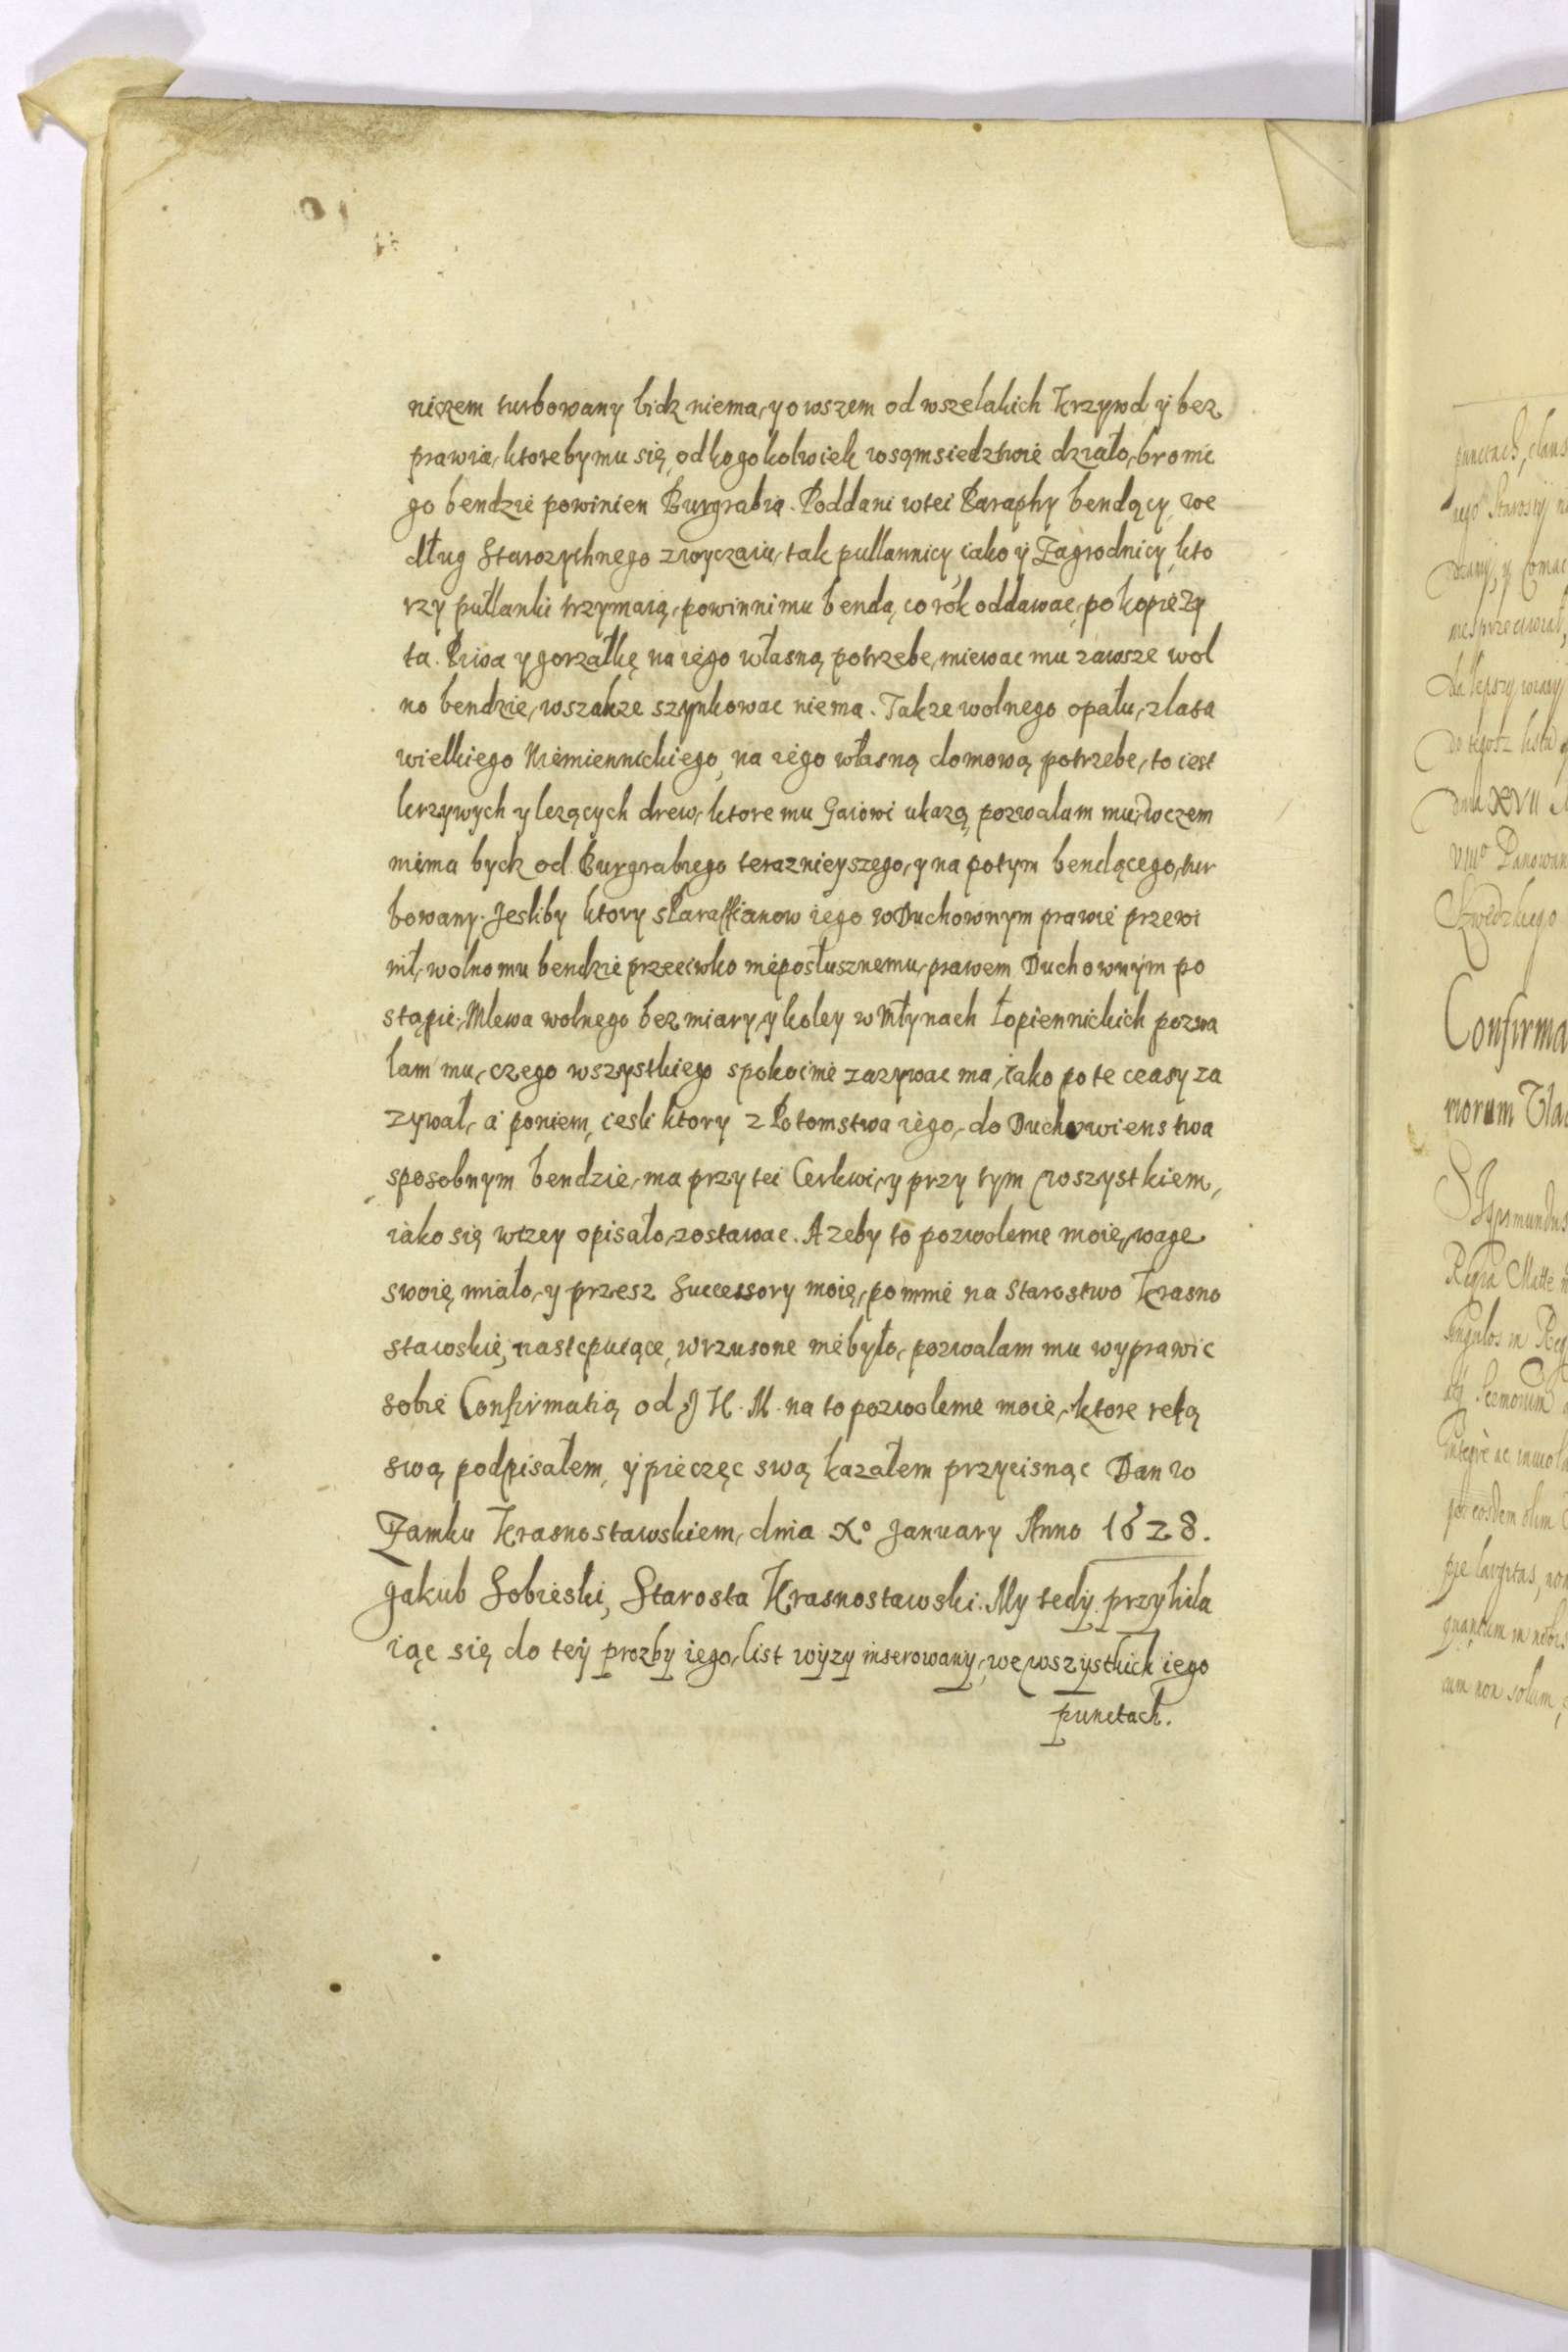 niczem turbowany bidz niema, y owszem od wszelakich Krzywd ÿ bez
prawia, ktoreby mu się, od kogokolwiek wsąmsiedztwie działo, bronic
go bendzie powinien Burgrabia. Poddani wtei Paraphy bendący, we
dług Starozythnego zwyczaiu, tak pullannicy iako ÿ Zagrodnicy, kto
rzy pułlanki trzymaią, powinni mu bendą, co rok oddawac, po kopie Zy
ta. Piwa y gorzałkę na iego własną potrzebe, miewac mu zawsze wol
no bendzie, wszakze szynkowac niema. Takze wolnego opału, z lasa
wielkiego Niemiennickiego, na iego własną domową potrzebe, to iest
krzywych y lezących drew, ktore mu Gaiowi ukazą, pozwalam mu, w czem
niema bydz od Burgrabiego teraznieyszego, y na potym bendącego, tur
bowany. Jesliby ktory s Paraffianow iego w Duchownym prawie przewi
nił, wolno mu bendzie przeciwko nieposłusznemu, prawem Duchownym po
stąpic, Mlewa wolnego bez miary, y koley w Młynach Łopiennickich pozwa
lam mu, czego wszystkiego spokoinie zazywac ma, iako po te czasy za
zywał, a poniem, iesli ktory z Potomstwa iego, do Duchowienstwa
sposobnym bendzie, ma przy tei Cerkwi, y przy tym wszystkiem,
iako się wizey opisało, zostawac. A zeby to pozwolenie moie, wage
swoię miało, y przesz Successory moię, po mnie na Starostwo Krasno
stawskie, nastepuiące, wrzusone niebyło, pozwalam mu wyprawic
sobie Confirmatią od J K. M. na to pozwolenie moie, ktore reką
swą podpisałem, ÿ pieczęc swą kazałem przycisnąc Dan w
Zamku Krasnostawskiem, dnia Xº January Anno 1628.
Jakub Sobieski, Starosta Krasnostawski. My tedÿ przyhila
iąc się do teÿ prozby iego, list wÿzy inserowanÿ, we wszÿstkich iego
punctach.